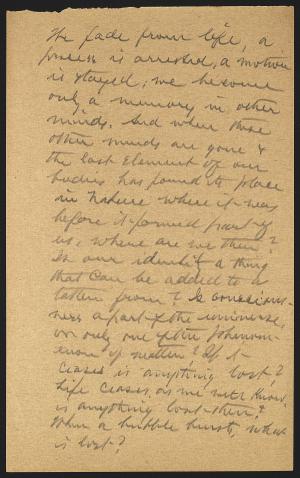 We fade from life, a
process is arrested, a motion
is stayed; we become
only a memory in other
minds. And when those
other minds are gone &
the last element of our
bodies has found its place
in Nature where it was
before it formed part of
us, where are we then?
Is our identity a thing
that can be added to or
taken from? Is conscious-
ness a part of the universe,
or only one of the phenom-
enon of matter? If it
ceases is anything lost?
Life ceases, as we know,
is anything lost then?
When a bubble bursts, what
is lost?